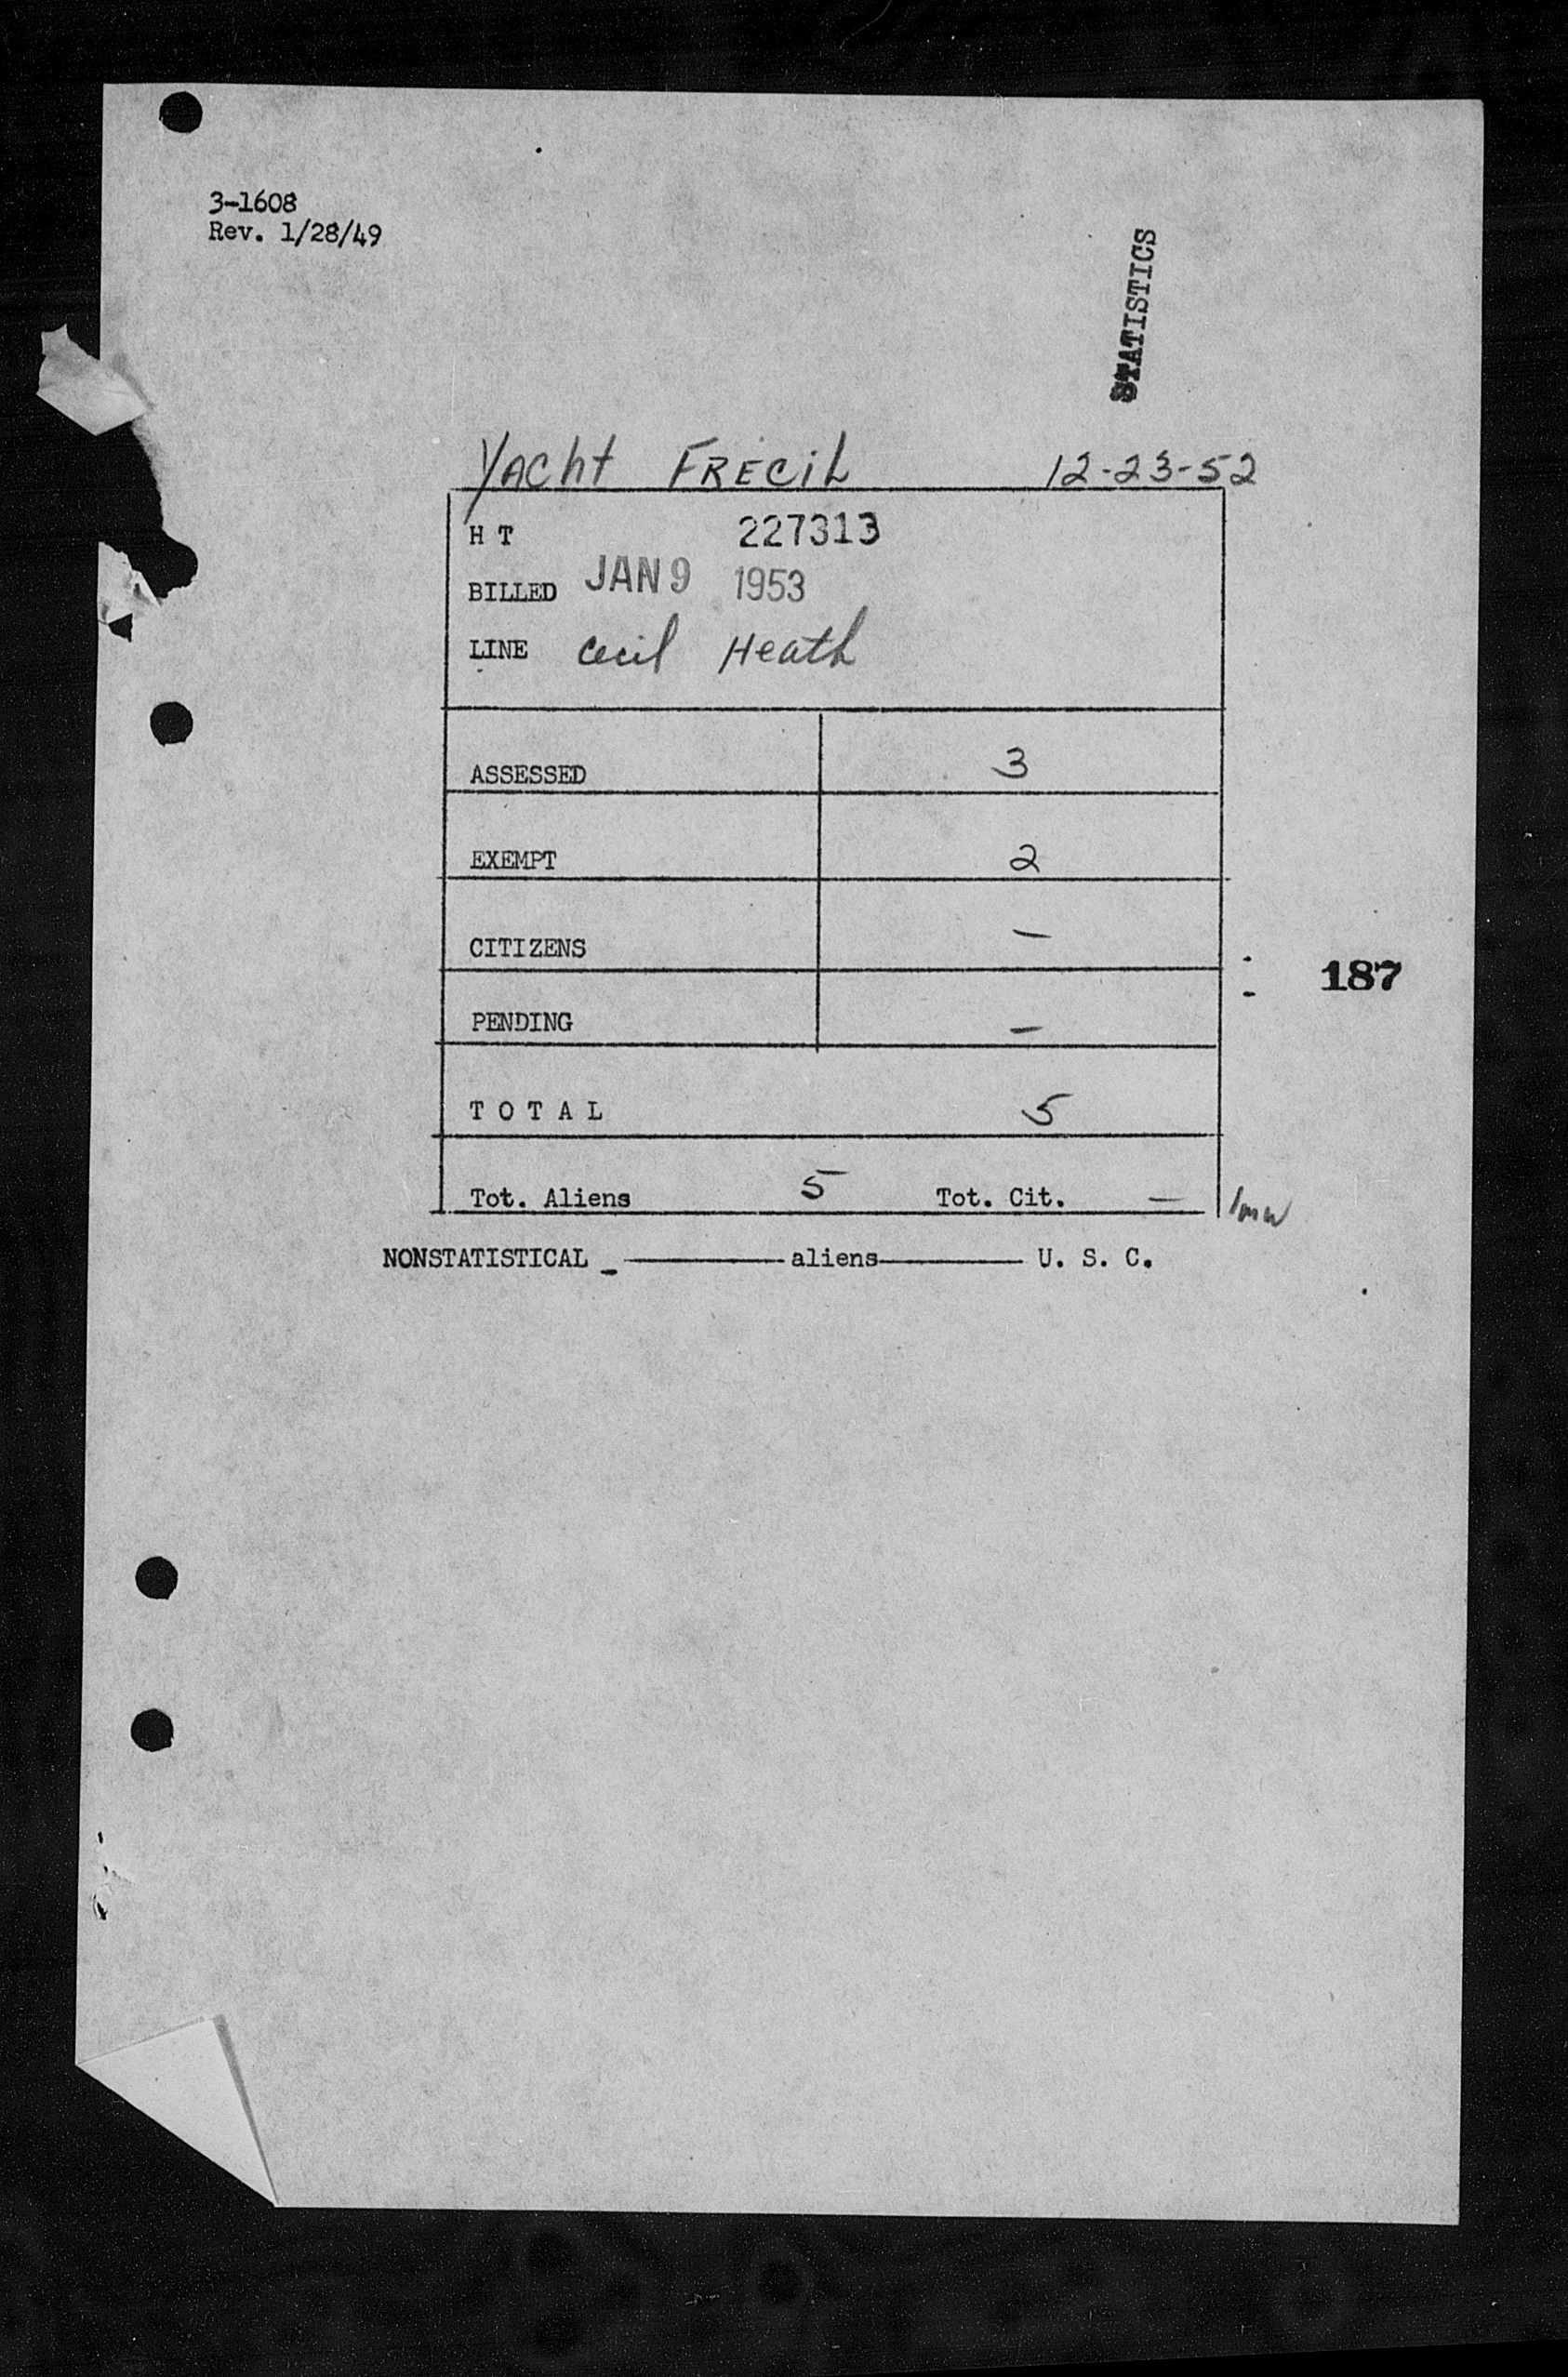 3-1608
Rev. 1/28/49
STATISTICS
Yacht FRECIL 12-23-52
H T 227313
BILLED JAN 9 1953
LINE Cecil Heath
ASSESSED 3
EXEMPT 2
CITIZENS –
187
PENDING –
T O T A L 5
Tot. Aliens 5 Tot. Cit. –
NONSTATISTICAL - ———— aliens ———— U. S. C.